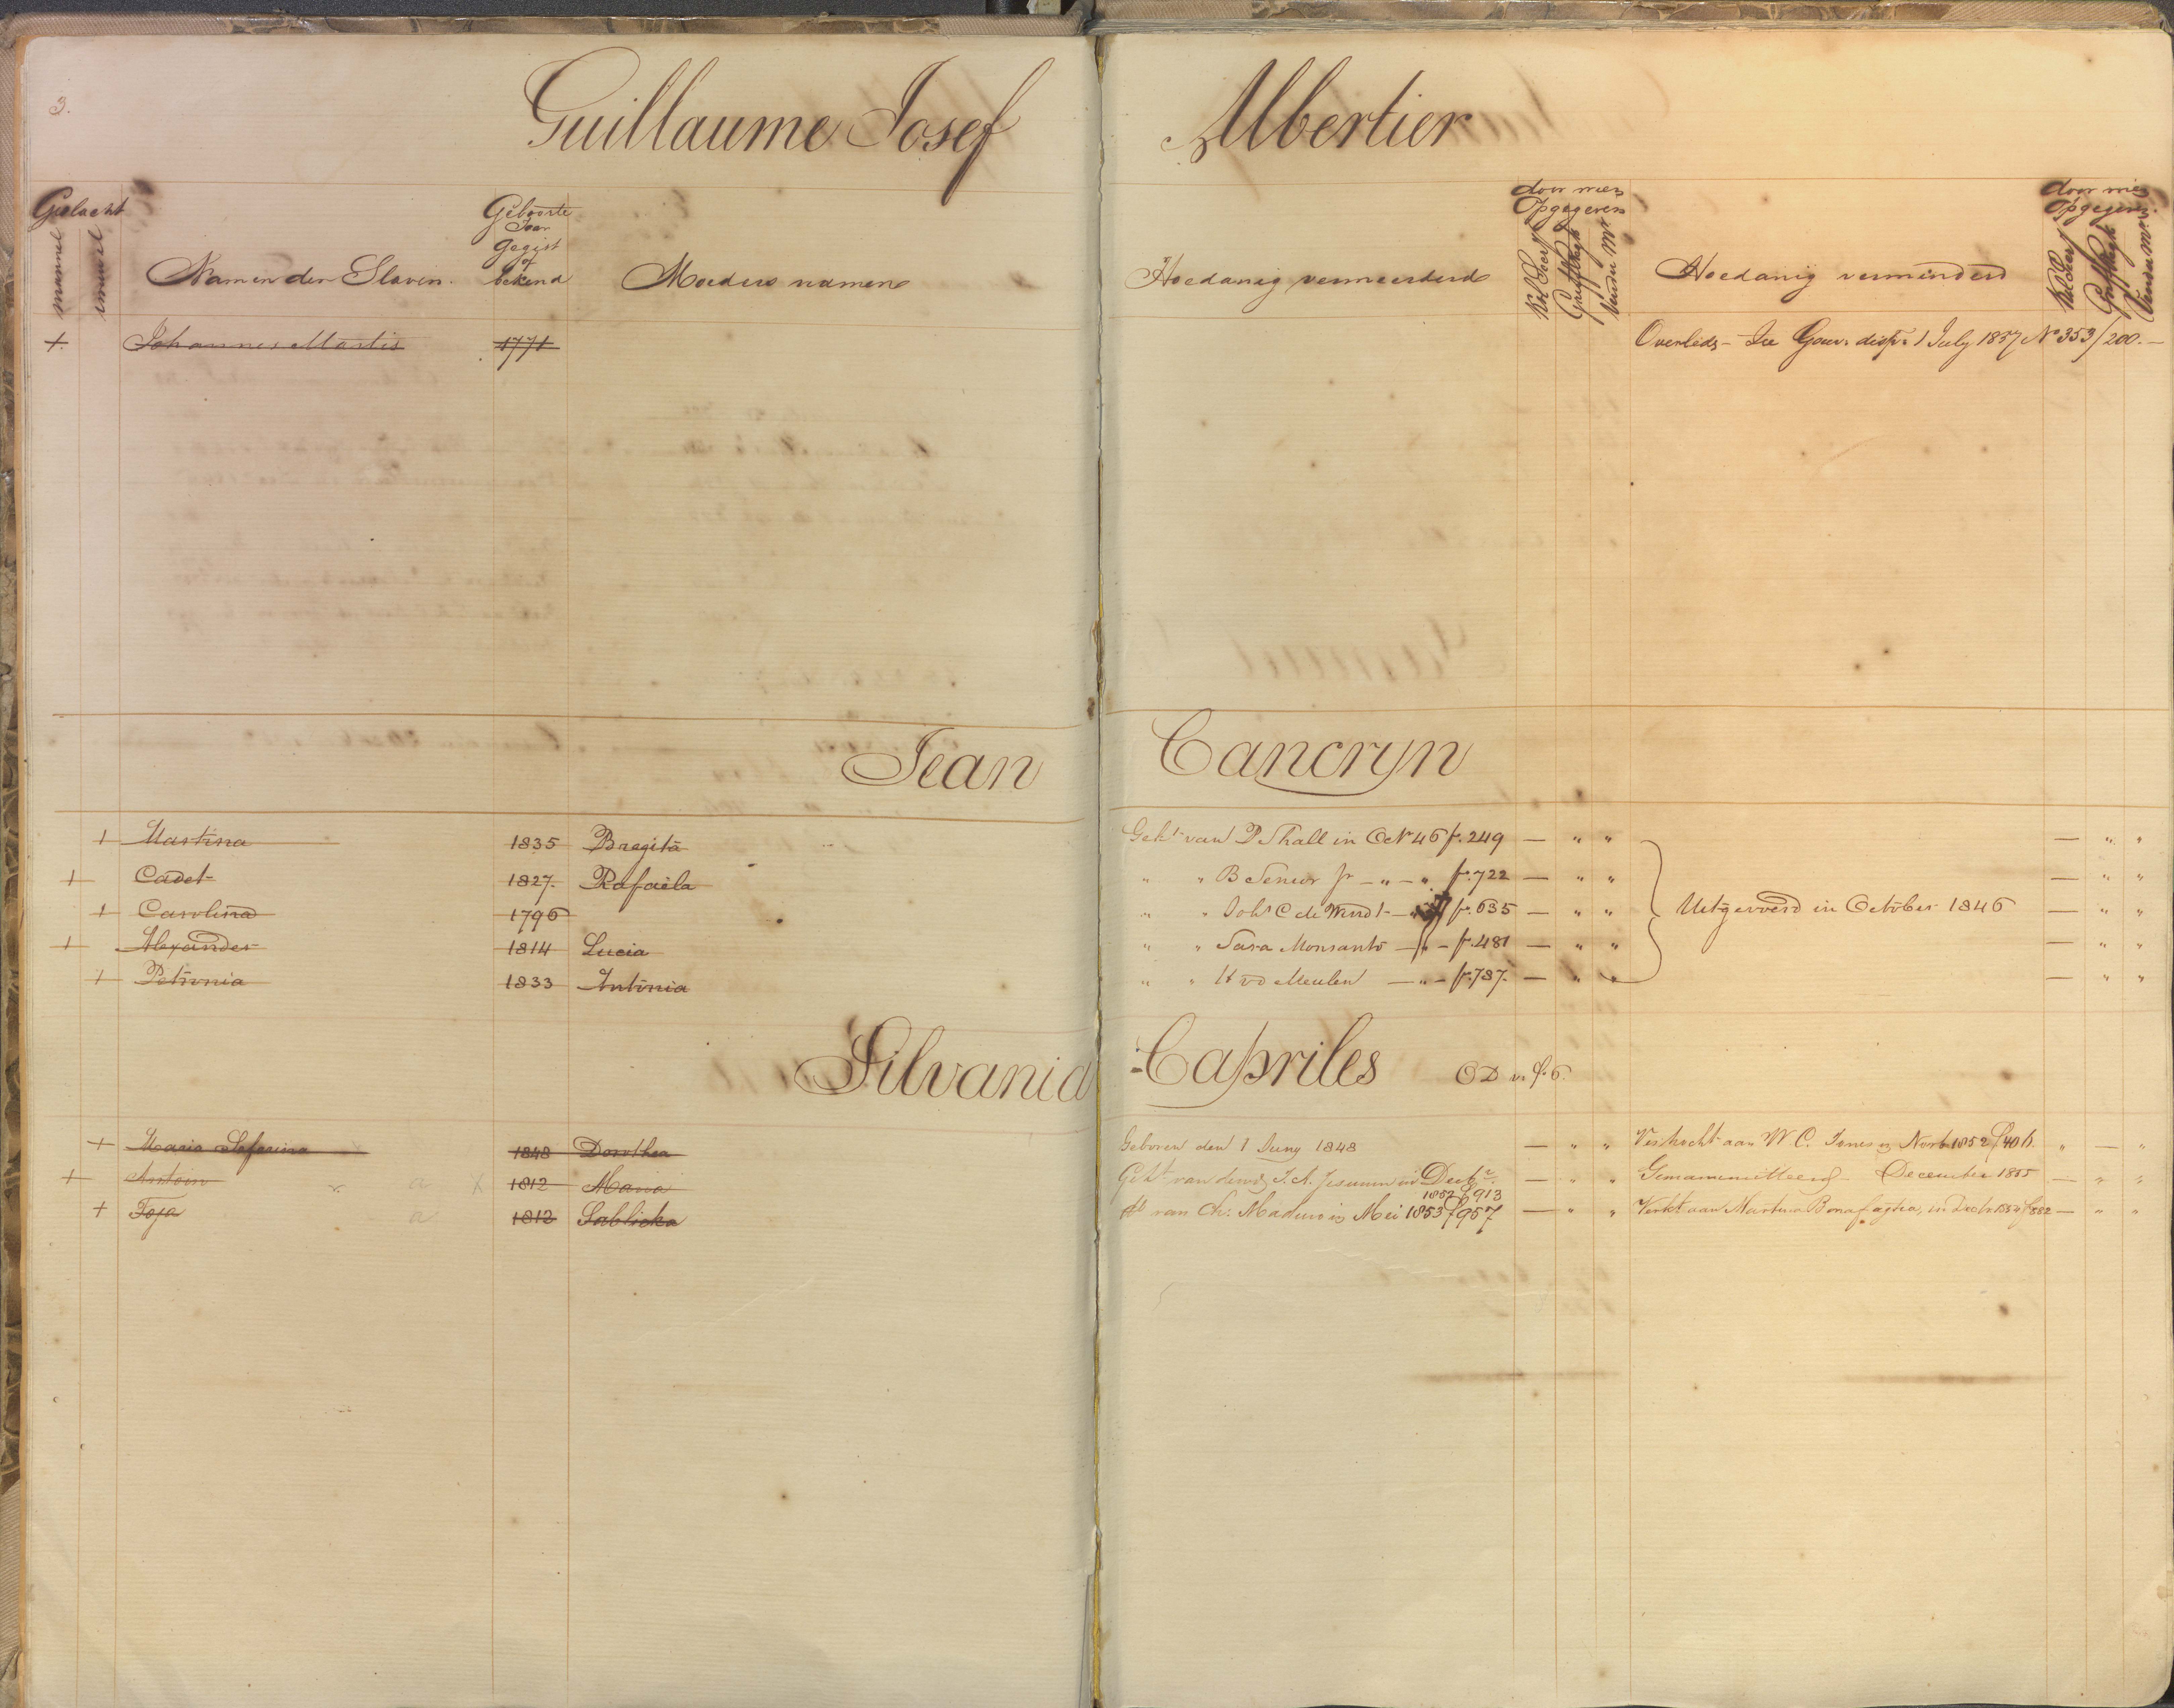 3.
Guillaume Josef Albertier
Geslacht
mannel
vrouwel
Namen der Slaven.
Geboorte
Jaar
Gegist
of
bekend
Moeders namen
Hoedanig vermeerderd
door mij
Opgegeven
Hoedanig verminderd
door mij
Opgegeven
+ Johannes Martis 1771 Overleds - Zie Gouvs disp. 1 July 1857 No 353/200. -
Jean Cancryn
1 Martina 1835 Bregita Gekt van P Thall in Oct 46 f. 249 — " " — " "
1 Cadet 1827. Rafaela " " B Senior Jr - " - " f. 722 — " " — " "
1 Carolina 1796 " " Joh C de Windt - f. 635 — " " Uitgevoerd in October 1846 — " "
1 Alexander 1814 Lucia " " Sara Monsanto — " - f. 481 — " " — " "
1 Petronia 1833 Antonia " " K vd Meulen — " - f. 787. — " " — " "
Silvania Capriles
+ Maria Seferina 1848 Dorothea Geboren den 1 Juny 1848 — " " Verkocht aan W C. Jones in Novb 1852 " — "
+ Antoin a x 1812 Maria Gekt van J. A. Jesurun in Decbr. — " " Gemanumitteerd - December 1855 — " "
1852 f 913
+ Toja a 1812 Sablicka van Ch: Maduro in Mei 1853 f 957 — " " Verkt aan Martina Bonafagtia, in Decbr f 882 — " "